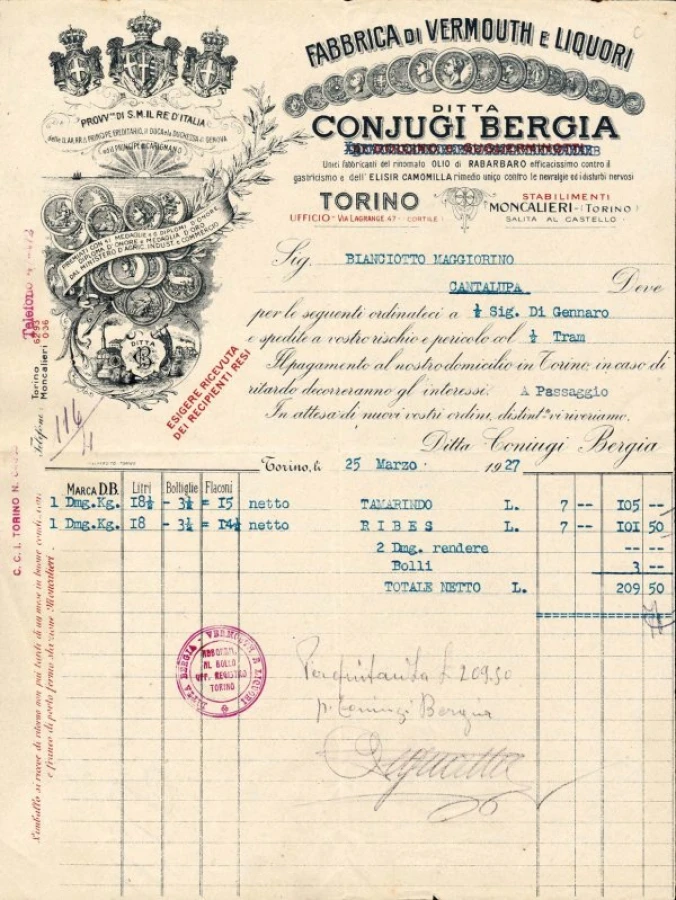 FABBRICA DI VERMOUTH E LIQUORI
DITTA
CONJUGI BERGIA
Unici fabbricanti del rinomato OLIO di RABARBARO efficacissimo contro il
gastricismo e dell' ELISIR CAMOMILLA rimedio unico contro le nevralgie ed i disturbi nervosi
TORINO
UFFICIO - VIA LAGRANGE. 47 - (CORTILE)
STABILIMENTI
MONCALIERI (TORINO)
SALITA AL CASTELLO
PROVV.ri DI S.M. IL RE D'ITALIA
delle LL.AA.RR. il PRINCIPE EREDITARIO, il DUCA e la DUCHESSA di GENOVA
ed il PRINCIPE di CARIGNANO
PREMIATI CON 41 MEDAGLIE e 5 DIPLOMI D'ONORE
DIPLOMA D'ONORE e MEDAGLIA D'ORO
DAL MINISTERO D'AGRIC. INDUST. e COMMERCIO
DITTA
CB
Telefono
Telefoni: Torino 6293
Moncalieri 036
116/4
ESIGERE RICEVUTA
DEI RECIPIENTI RESI
Sig. BIANCIOTTO MAGGIORINO
CANTALUPA Deve
per le seguenti ordinateci a ½ Sig. Di Gennaro
e spedite a vostro rischio e pericolo col ½ Tram
Il pagamento al nostro domicilio in Torino, in caso di
ritardo decorreranno gl' interessi. A Passaggio
In attesa di nuovi vostri ordini, distint.te vi riveriamo.
Ditta Coniugi Bergia
Torino, li 25 Marzo 1927
MARCA D.B. Litri Bottiglie Flaconi
1 Dmg.Kg. 18½ - 3½ = 15 netto TAMARINDO L. 7 -- 105 --
1 Dmg.Kg. 18 - 3½ = 14½ netto RIBES L. 7 -- 101 50
2 Dmg. rendere -- --
Bolli 3 --
TOTALE NETTO L. 209 50
C. C. I. TORINO N.
L'imballo si riceve di ritorno non più tardi di un mese in buone condizioni
e franco di porto fermo stazione Moncalieri.
DITTA BERGIA - VERMOUTH E LIQUORI
ABBONAM.
AL BOLLO
UFF. REGISTRO
TORINO
Per quitanza £ 209.50
p. Coniugi Bergia